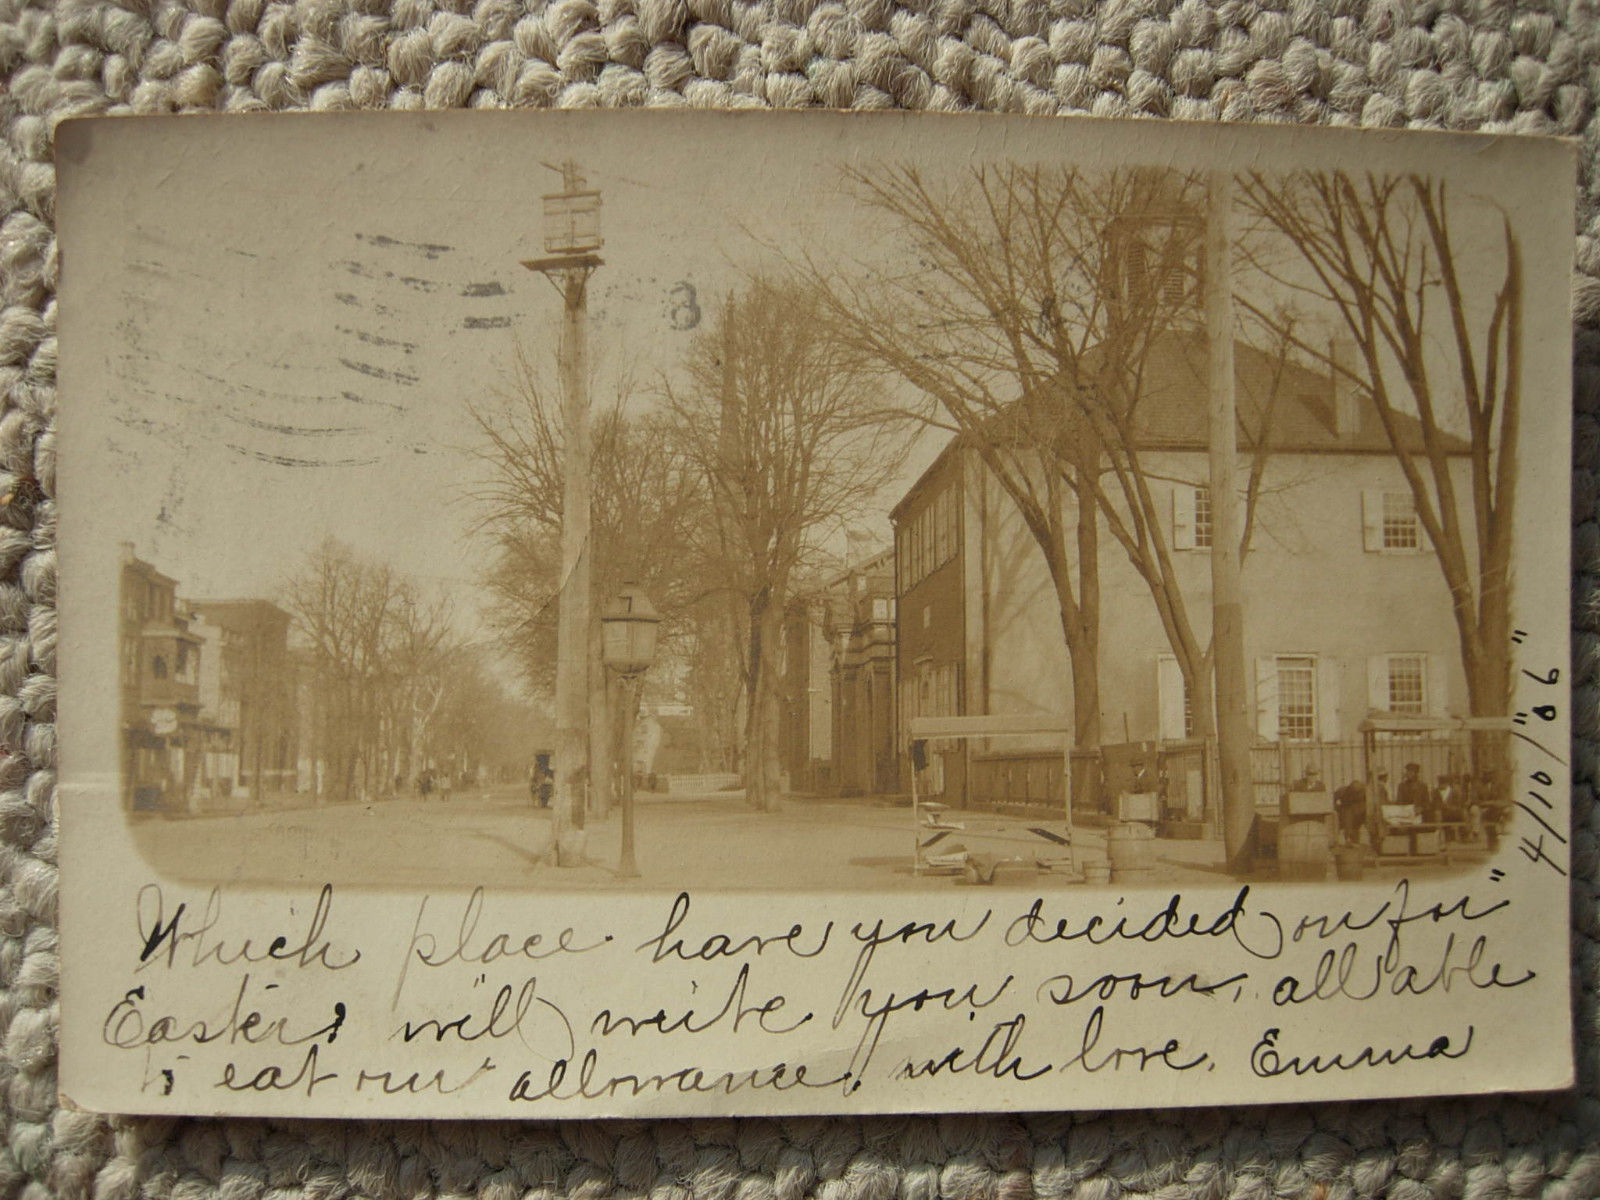 Which place have you decided on for
Easter, will write you soon, all able
to eat our allowance. with love. Emma
4/10/"06"
8